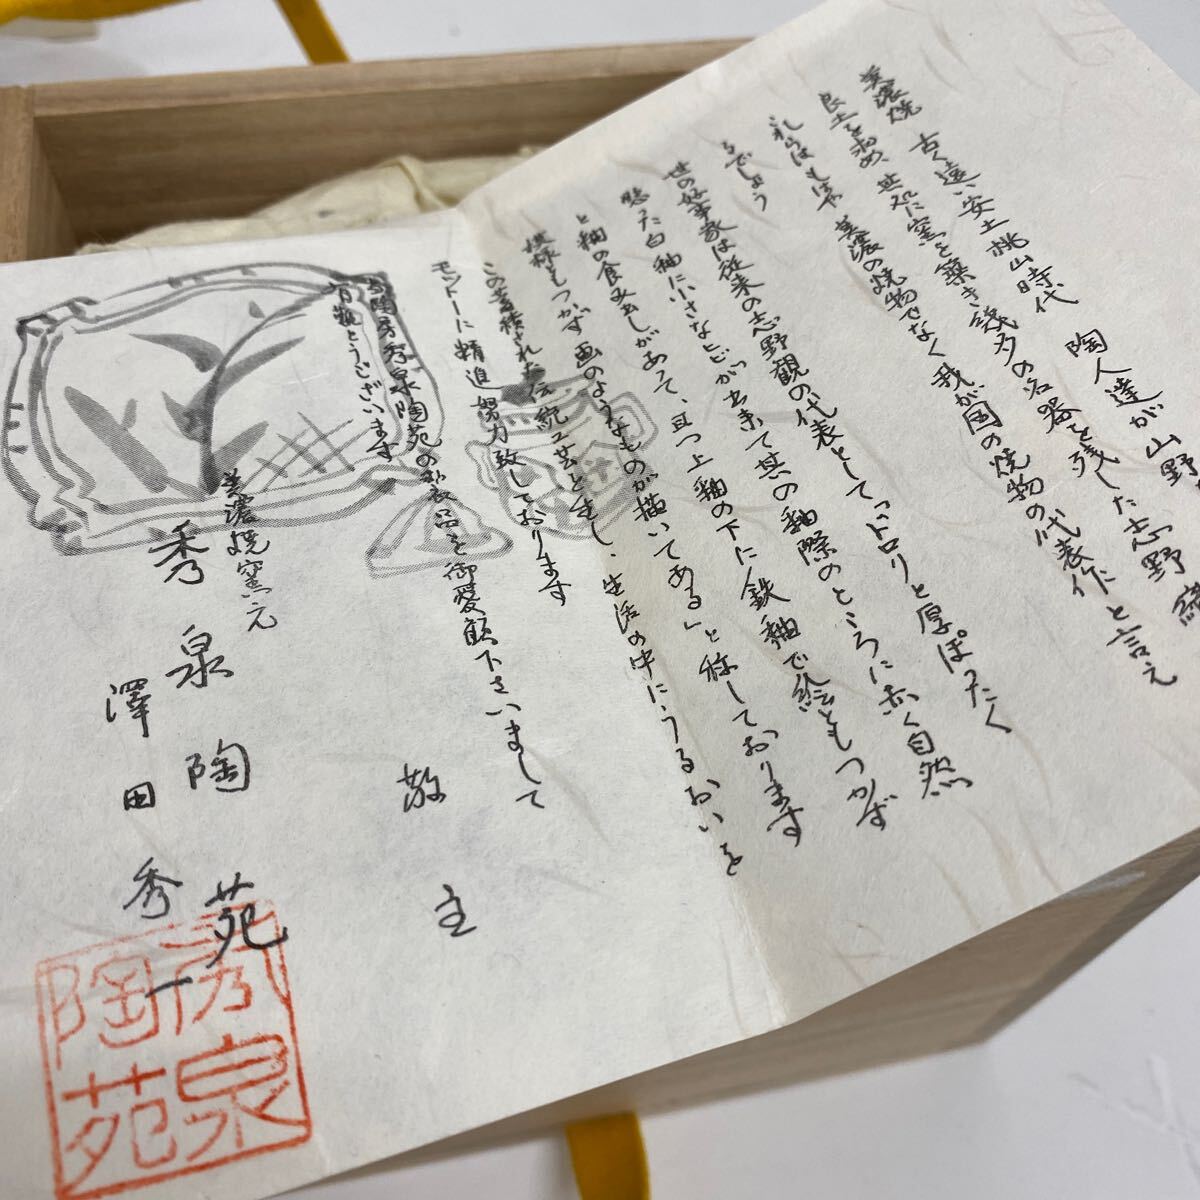 美濃焼 古く遠い安土桃山時代 陶人達が山野
良土を求め、其処に窯を築き幾多の名器を残した志野 織
これらはもはや美濃の焼物でなく我が国の焼物の代表作と言え
るでしょう
世の好事家は従来の志野観の代表として「トロリと厚ぽったく
懸った白釉に小さなヒビが出来て其の釉際のところに赤く自然
と釉の食み出しがあって、且つ上釉の下に鉄釉で絵ともつかず
模様ともつかず 画のようなものが描いてある」と称しております
この蓄積された伝統工芸を生し、生活の中にうるおいを
モットーに精進努力致しております
当陶房秀泉陶苑の製品を御愛顧下さいまして
有難とうございます
敬 主
美濃焼窯元
秀泉陶苑
澤田秀一
秀泉
陶苑